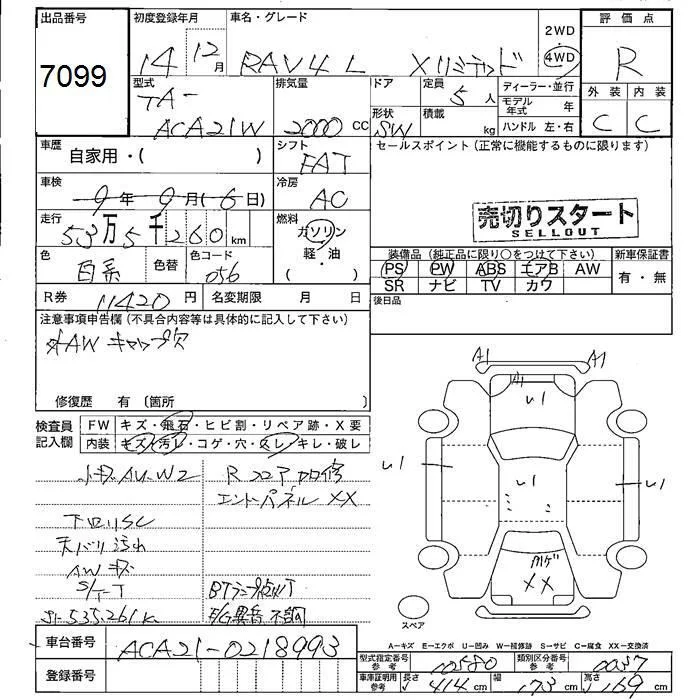 出品番号
7099
初度登録年月
14 12月
車名・グレード
RAV4 L Xリミテッド
2WD
4WD
評価点
R
外装 内装
C C
型式
TA-
ACA21W
排気量
2000 cc
ドア
形状
SW
定員
5 人
積載
kg
ディーラー・並行
モデル年式 年
ハンドル 左・右
車歴
自家用・( )
シフト
FAT
セールスポイント (正常に機能するものに限ります)
車検
9年 9月 (6日)
冷房
AC
売切りスタート
SELLOUT
走行
53万5千260km
燃料
ガソリン
軽・油
・( )
色
白系
色替
色コード
056
装備品 (純正品に限り○をつけて下さい)
PS PW ABS エアB AW
SR ナビ TV カワ
新車保証書
有・無
R券 11420 円
名変期限 月 日
後日品
注意事項申告欄 (不具合内容等は具体的に記入して下さい)
AW キャップ穴
修復歴 有 (箇所 )
検査員記入欄
FW キズ・飛石・ヒビ割・リペア跡・X要
内装 キズ・汚レ・コゲ・穴・スレ・キレ・破レ
小キズAU・W2
Rコア
エンドパネル XX
下回リSC
天バリ汚れ
AWキズ
S/T-T
535261K
E/G異音 不調
A1 A1
A1
U1
U1
U1
U1
XX
スペア
A－キズ E－エクボ U－凹み W－補修跡 S－サビ C－腐食 XX－交換済
車台番号
ACA21-0218993
登録番号
型式指定番号
参考
10580
類別区分番号
参考
0037
車庫証明用
参考
長さ 414 cm
幅 173 cm
高さ 169 cm